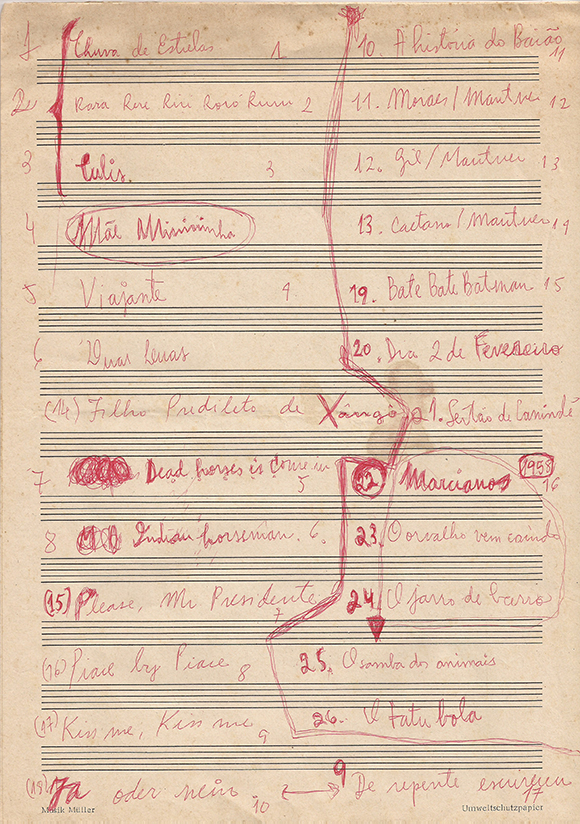 1 Chuva de Estrelas 1
2 Rara Rere Riri Roró Ruru 2
3 Lulis. 3
4 Mãe Mininha
5 Viajante 4
6 Duas Luas
(14) Filho Predileto de Xangô
7 Dead horses is Come in 5
8 Indian horseman. 6.
(15) Please, Mr Presidente, 7
(16) Piace by Piace 8
(17) Kiss me, Kiss me, 9
(18) Ja oder nein. 10
Musik Müller
10. A história do Baião 11
11. Moraes/Mautner 12
12. Gil/Mautner 13
13. Caetano/Mautner 14
19. Bate Bate Batman 15
20. Dia 2 de Fevereiro
21. Sertão de Canindé
22 Marcianos 1958 16
23. O orvalho vem caindo
24. O jarro de barro
25. O samba dos animais
26. O tatu bola
9 De repente escureceu 17
Umweltschutzpapier